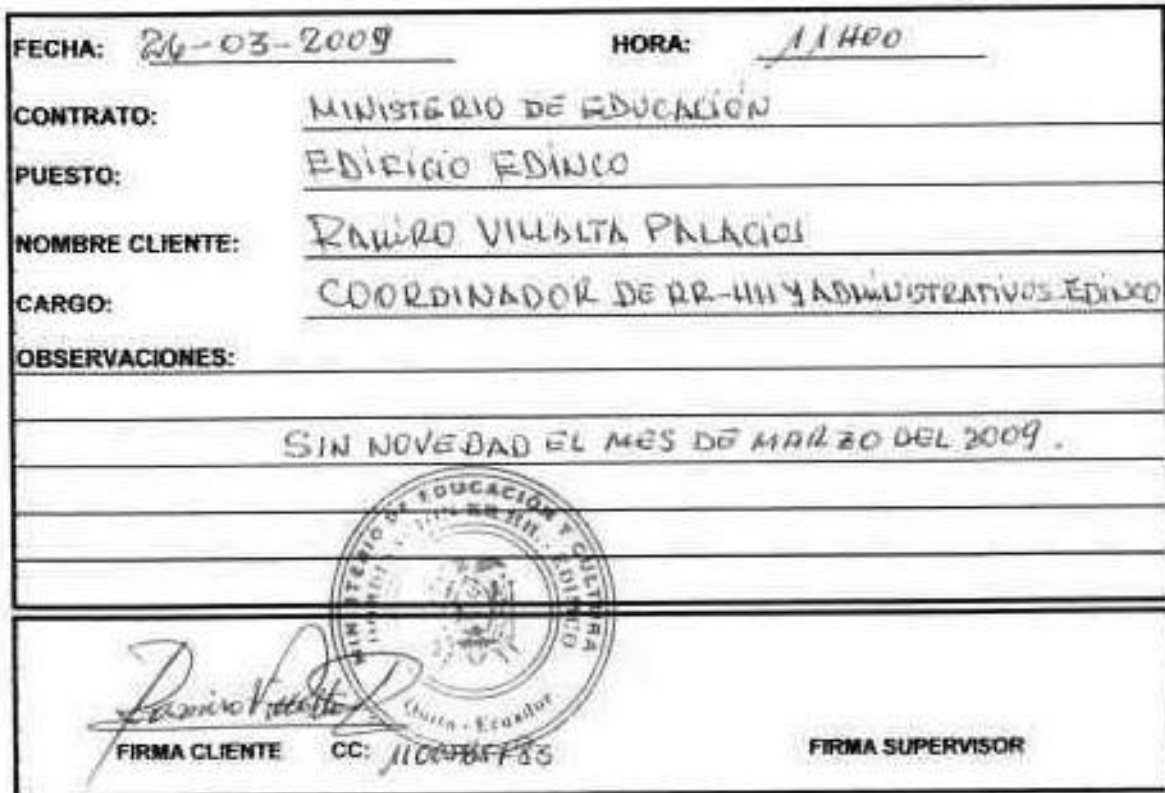 FECHA: 26-03-2009 HORA: 11H00
CONTRATO: MINISTERIO DE EDUCACIÓN
PUESTO: EDIFICIO EDINCO
NOMBRE CLIENTE: RAMIRO VILLALTA PALACIOS
CARGO: COORDINADOR DE RR-HH Y ADMINISTRATIVOS-EDINCO
OBSERVACIONES:
SIN NOVEDAD EL MES DE MARZO DEL 2009.
MINISTERIO DE EDUCACIÓN Y CULTURA
RR HH. - EDINCO
Quito - Ecuador
Ramiro Villalta P
FIRMA CLIENTE CC: FIRMA SUPERVISOR